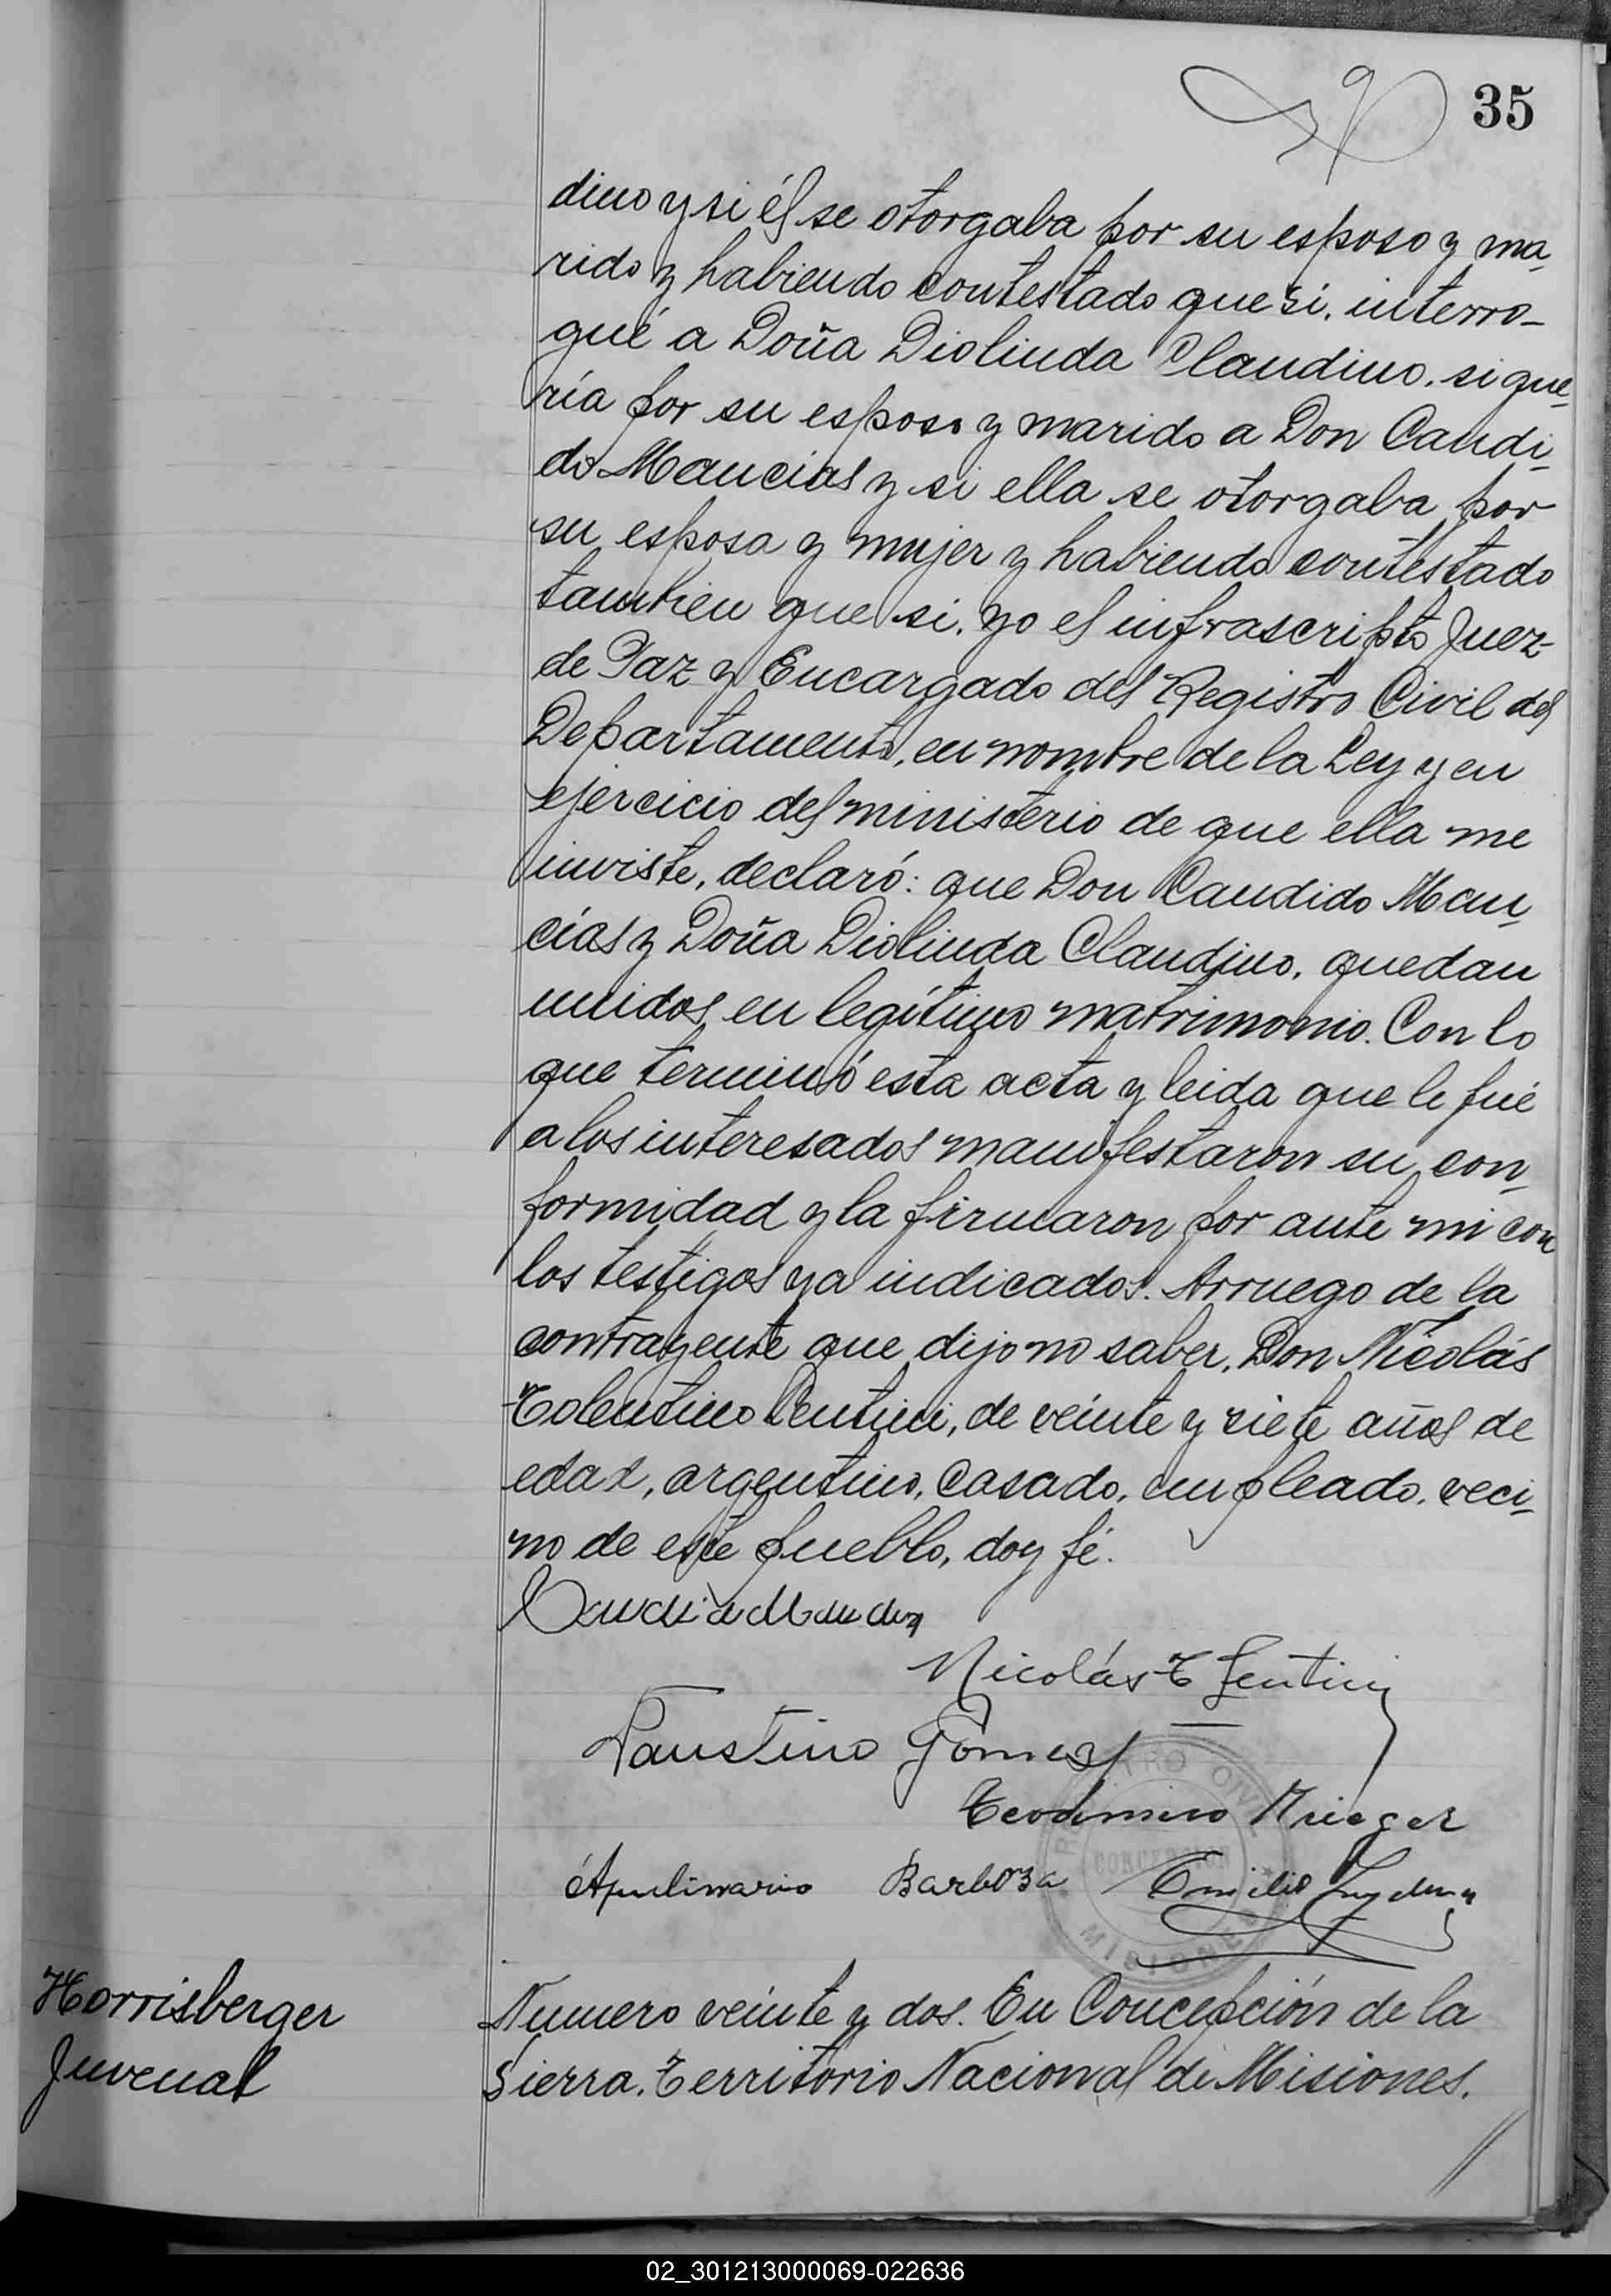 35
dino y si él se otorgaba por su esposo y ma-
rido y habiendo contestado que si, interro-
gué a Doña Diolinda Claudino, si que-
ría por su esposo y marido a Don Candi-
do Mancias y si ella se otorgaba por
su esposa y mujer y habiendo contestado
tambien que si, yo el infrascripto Juez
de Paz y Encargado del Registro Civil del
Departamento, en nombre de la Ley y en
ejercicio del ministerio de que ella me
inviste, declaró: que Don Candido Man-
cias y Doña Diolinda Claudino, quedan
unidos en legítimo matrimonio. Con lo
que terminó esta acta y leida que le fué
a los interesados manifestaron su con-
formidad y la firmaron por ante mi con
los testigos ya indicados. Arruego de la
contrayente que dijo no saber, Don Nicolás
Tolentino Lentini, de veinte y siete años de
edad, argentino, casado, empleado, veci-
no de este pueblo, doy fé.
Nicolás T Lentini
Faustino Gomez
Teodimiro Krieger
Apulinario Barboza Emilio
REGISTRO CIVIL
CONCEPCION
MISIONES
Horrisberger
Juvenal
Numero veinte y dos. En Concepción de la
Sierra, Territorio Nacional de Misiones,
02_301213000069-022636